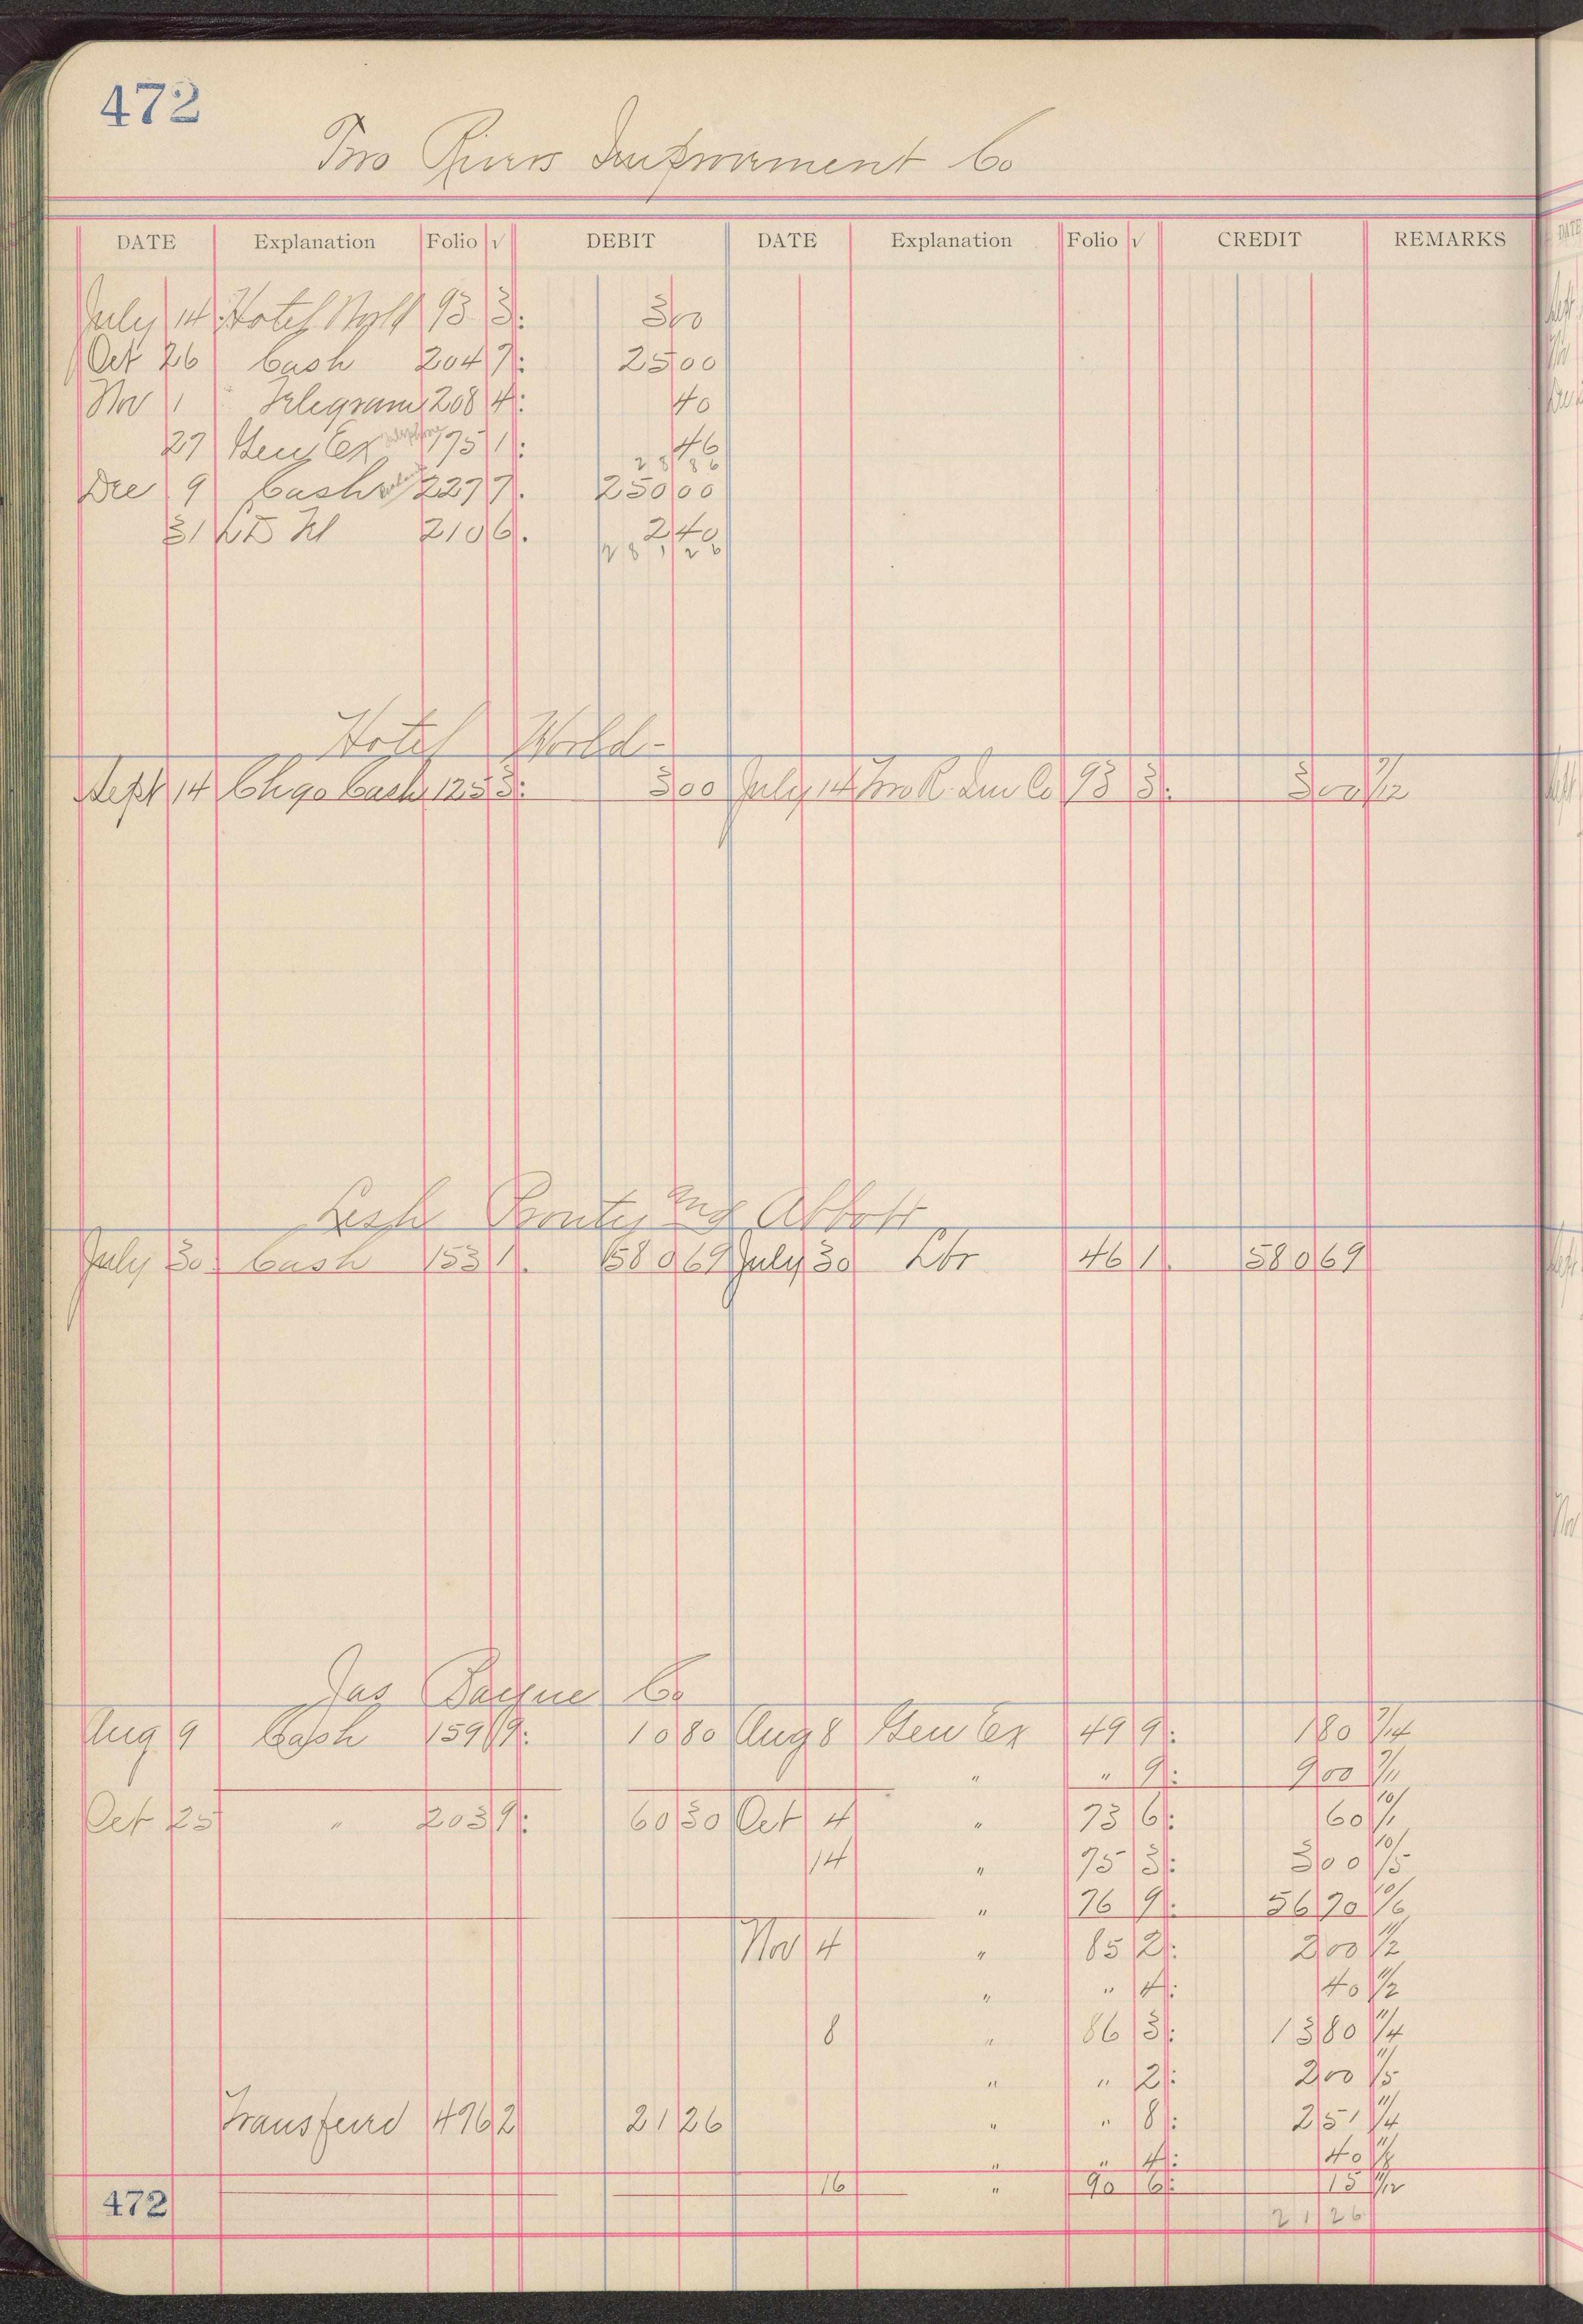 472
Two Rivers Improvement Co
DATE Explanation Folio √ DEBIT DATE Explanation Folio √ CREDIT REMARKS
July 14 Hotel World 93 3: 3 00
Oct 26 Cash 204 7: 25 00
Nov 1 " Telegrams 208 4: 40
27 Gen Ex Telephone 175 1: 46
28 86
Dec 9 Cash 227 7. 250 00
31 L D Tel 210 6. 2 40
281 26
Hotel World -
Sept 14 Chgo Cash 125 3: 3 00 July 14 Two R. Im Co 93 3: 3 00 7/12
Lesh Prouty and Abbott
July 30 Cash 153 1. 580 69 July 30 Lbr 46 1. 580 69
Jas Bayne Co
Aug 9 Cash 159 9: 10 80 Aug 8 Gen Ex 49 9: 1 80 7/14
" " 9: 9 00 7/11
Oct 25 " 203 9: 60 30 Oct 4 " 73 6: 60 10/1
14 " 75 3: 3 00 10/5
" 76 9: 56 70 10/6
Nov 4 " 85 2: 2 00 11/2
" " 4: 40 11/2
8 " 86 3: 13 80 11/4
" " 2: 2 00 11/5
Transferred 496 2 21 26 " " 8: 2 51 11/4
" " 4: 40 11/8
472 16 " 90 6: 15 11/12
21 26